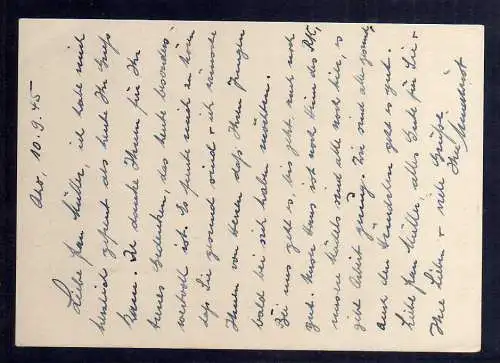 Aw, 10.9.45
Liebe Frau Müller, ich habe mich
herzlich gefreut als heute Ihr Gruß
kam. Ich danke Ihnen für Ihr
treues Gedenken, das heute besonders
wertvoll ist. Es freute mich zu hören
daß Sie gesund sind + ich wünsche
Ihnen von Herzen daß Ihren Jungen
bald bei sich haben möchten.
Bei uns geht es, bis jetzt, auch noch
gut. Mein Hans ist noch beim
unsere Mädels sind alle noch hier, es
gibt Arbeit genug. Wir sind alle gesund,
auch den geht es gut.
Liebe Frau Müller alles Gute für Sie +
Ihre Lieben + viele Grüße
Ihre